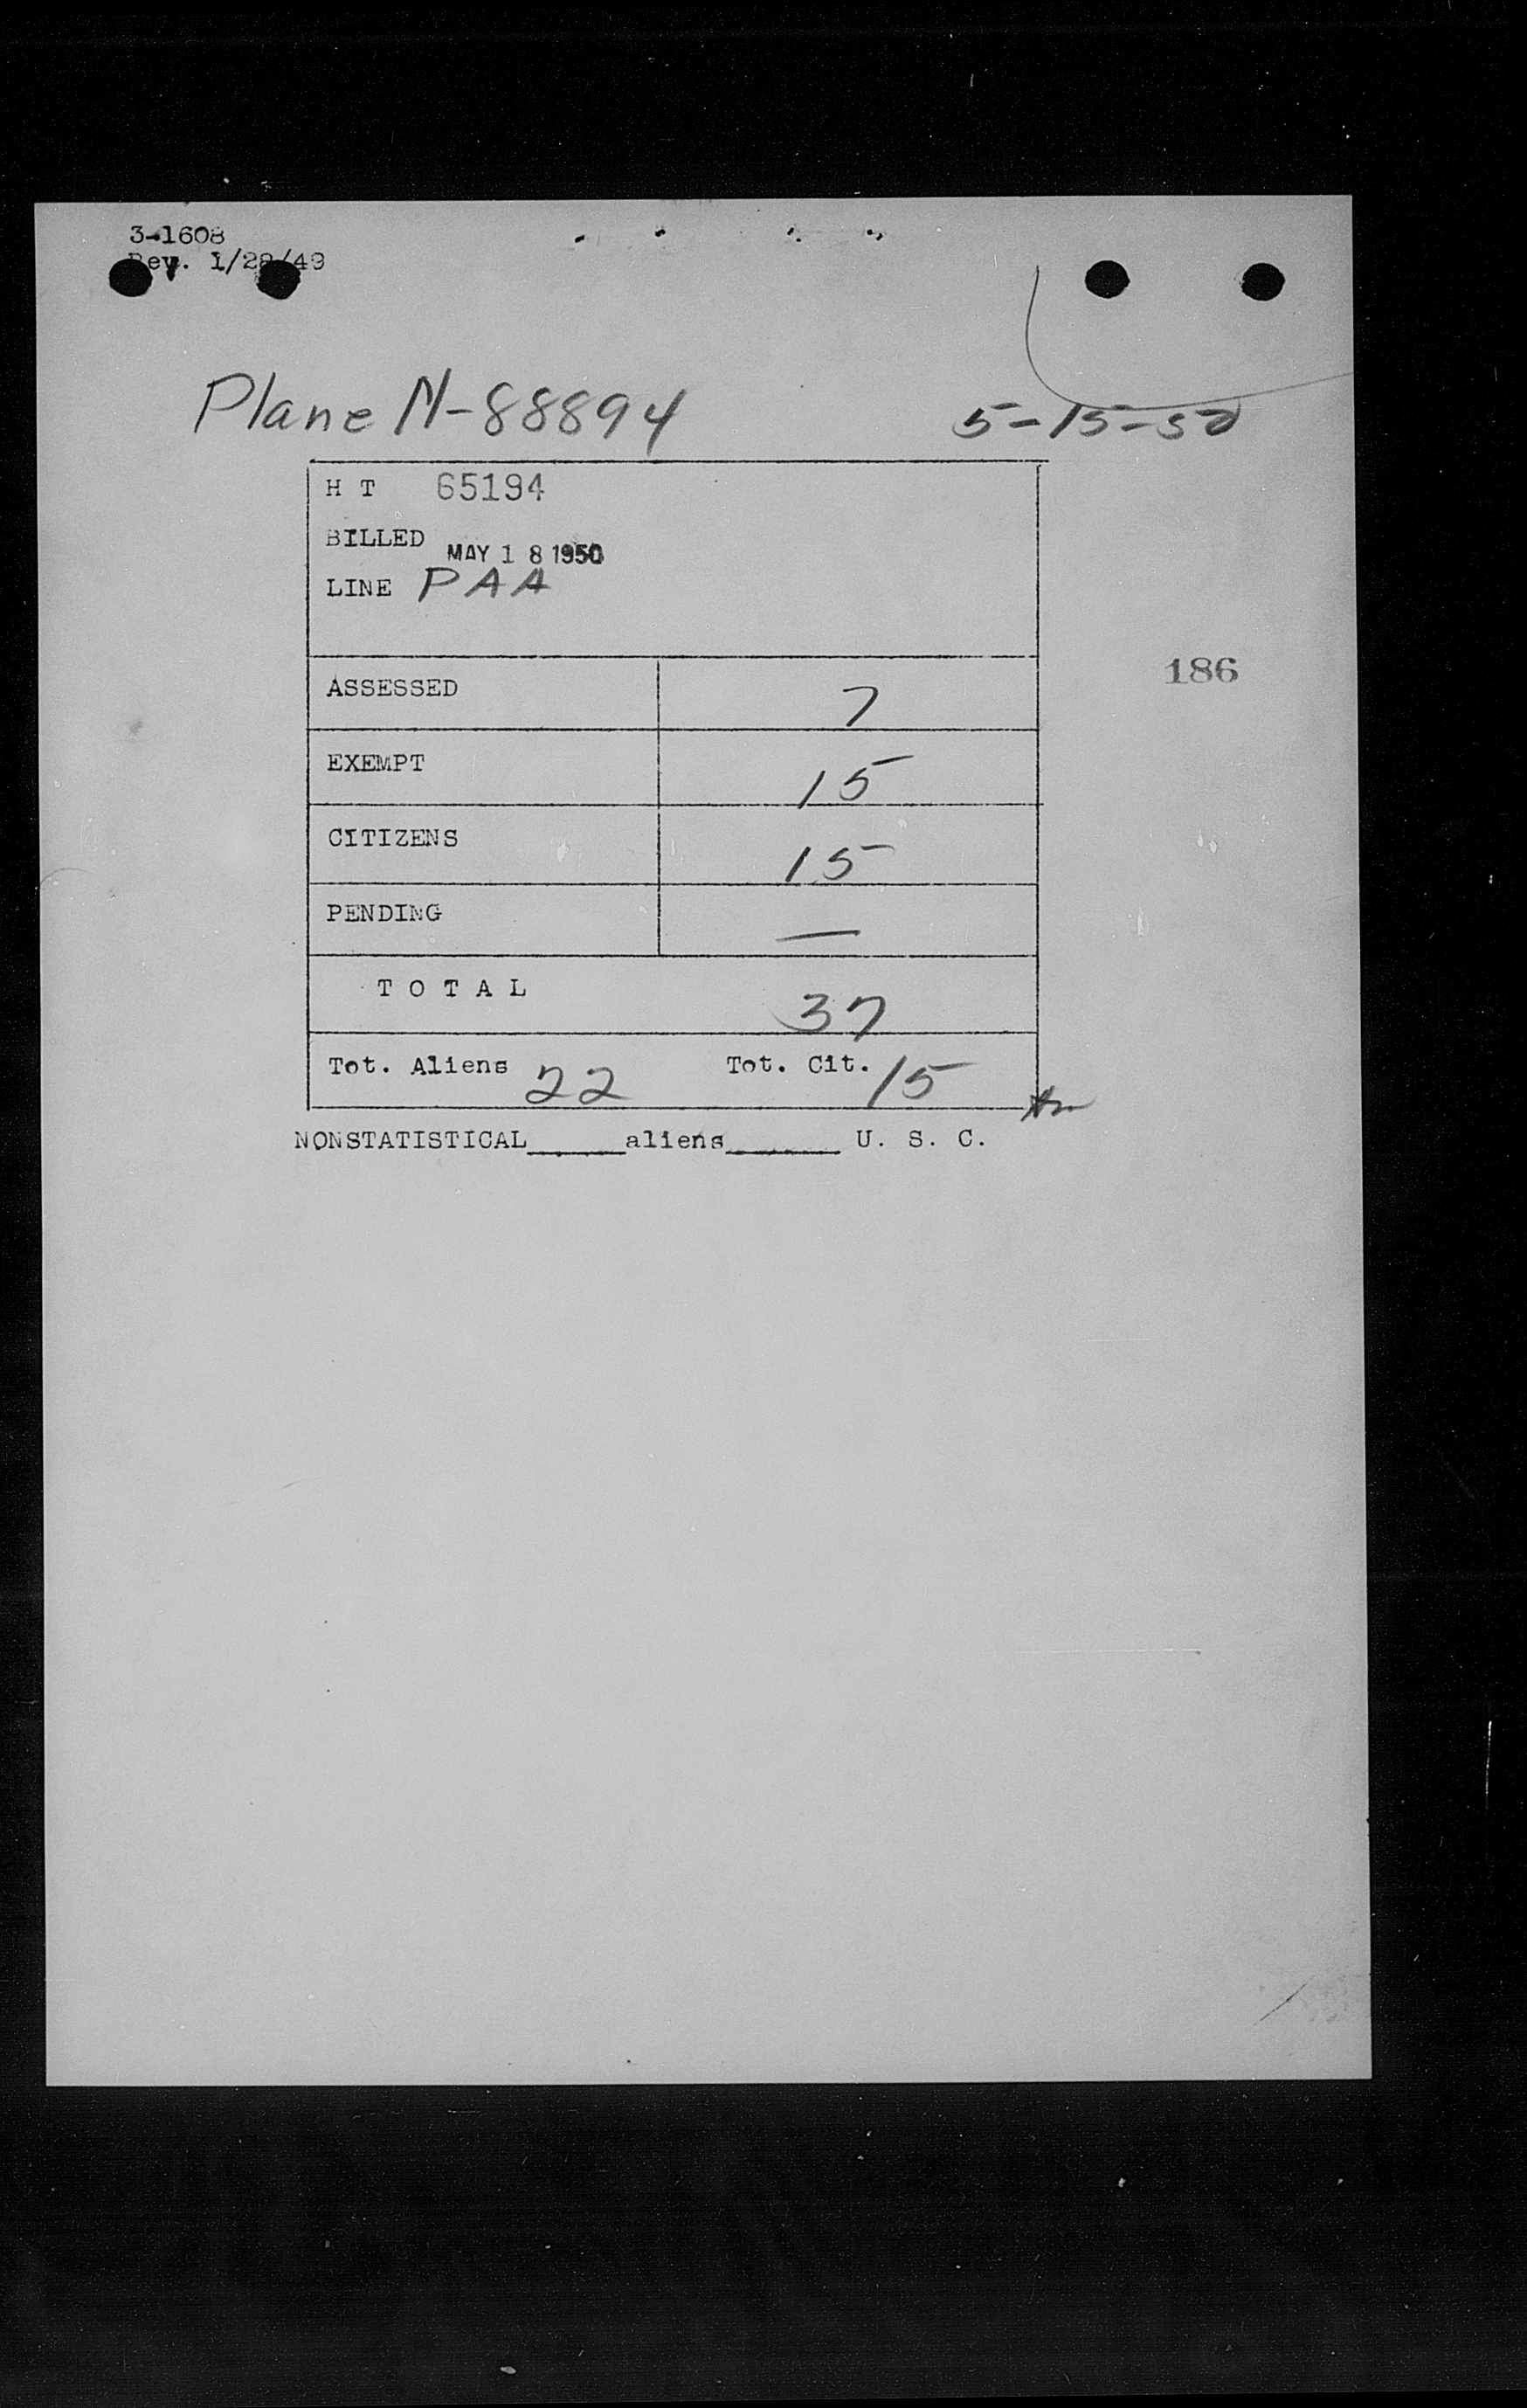 3-1608
Rev. 1/28/49
Plane N-88894 5-15-50
H T 65194
BILLED MAY 18 1950
LINE PAA
186
ASSESSED 7
EXEMPT 15
CITIZENS 15
PENDING —
TOTAL 37
Tot. Aliens 22 Tot. Cit. 15
NONSTATISTICAL_____aliens______ U. S. C.